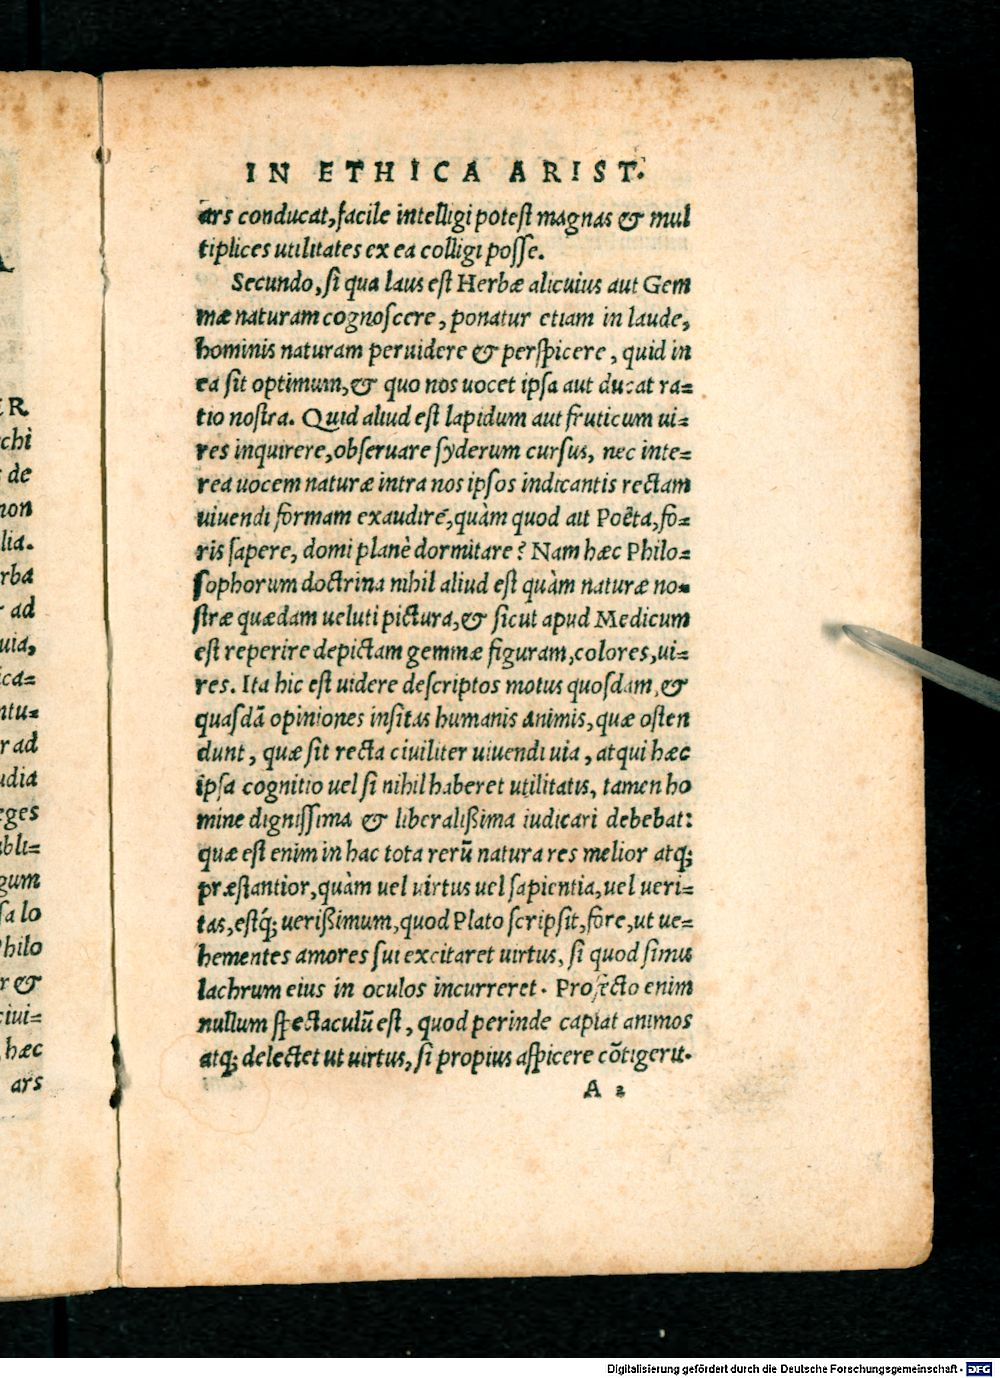 A
ER
chi
s de
non
lia.
rba
r ad
uia,
ica=
ntu=
r ad
udia
eges
ubli=
gum
sa lo
Philo
r &
ciui=
, hæc
ars
IN ETHICA ARIST.
ars conducat, facile intelligi potest magnas & mul
tiplices utilitates ex ea colligi posse.
Secundo, si qua laus est Herbæ alicuius aut Gem
mæ naturam cognoscere, ponatur etiam in laude,
hominis naturam peruidere & perspicere, quid in
ea sit optimum, & quo nos uocet ipsa aut ducat ra=
tio nostra. Quid aliud est lapidum aut fruticum ui=
res inquirere, obseruare syderum cursus, nec inte=
rea uocem naturæ intra nos ipsos indicantis rectam
uiuendi formam exaudire, quàm quod ait Poëta, fo=
ris sapere, domi planè dormitare? Nam hæc Philo=
sophorum doctrina nihil aliud est quàm naturæ no=
stræ quædam ueluti pictura, & sicut apud Medicum
est reperire depictam gemmæ figuram, colores, ui=
res. Ita hic est uidere descriptos motus quosdam, &
quasdā opiniones insitas humanis animis, quæ osten
dunt, quæ sit recta ciuiliter uiuendi uia, atqui hæc
ipsa cognitio uel si nihil haberet utilitatis, tamen ho
mine dignissima & liberalißima iudicari debebat:
quæ est enim in hac tota rerū natura res melior atq;
præstantior, quàm uel uirtus uel sapientia, uel ueri=
tas, estq́; uerißimum, quod Plato scripsit, fore, ut ue=
hementes amores sui excitaret uirtus, si quod simu
lachrum eius in oculos incurreret. Profecto enim
nullum spectaculū est, quod perinde capiat animos
atq; delectet ut uirtus, si propius aspicere cōtigerit.
A 2
Digitalisierung gefördert durch die Deutsche Forschungsgemeinschaft - DFG